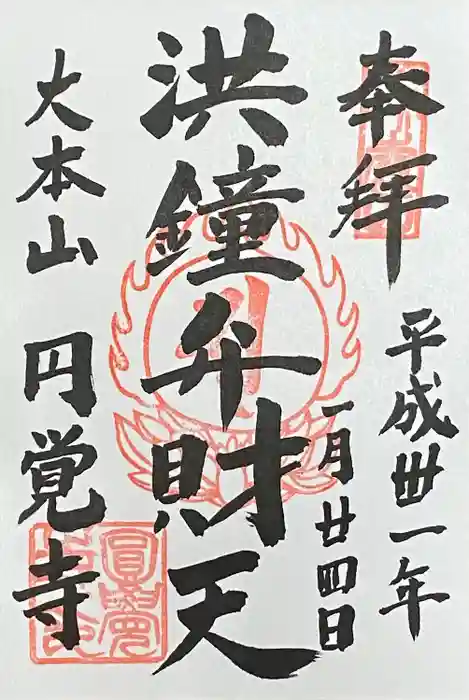 奉拝
平成卅一年
一月廿四日
洪鐘弁財天
大本山 円覚寺